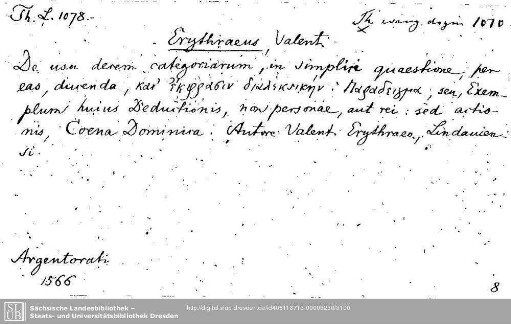 Th. L. 1078.
Th. evang. dogm. 1010
Erythraeus, Valent.
De usu decem categoriarum, in simplici quaestione, per
eas, ducenda, κατ' ἔκφρασιν διαλεκτικὴν: Παράδειγμα, seu, Exem-
plum huius Deductionis, non personae, aut rei: sed actio-
nis, Coena Dominica. Autore Valent. Erythraeo, Lindauien-
si.
Argentorati
1566
8
SLUB
Sächsische Landesbibliothek –
Staats- und Universitätsbibliothek Dresden